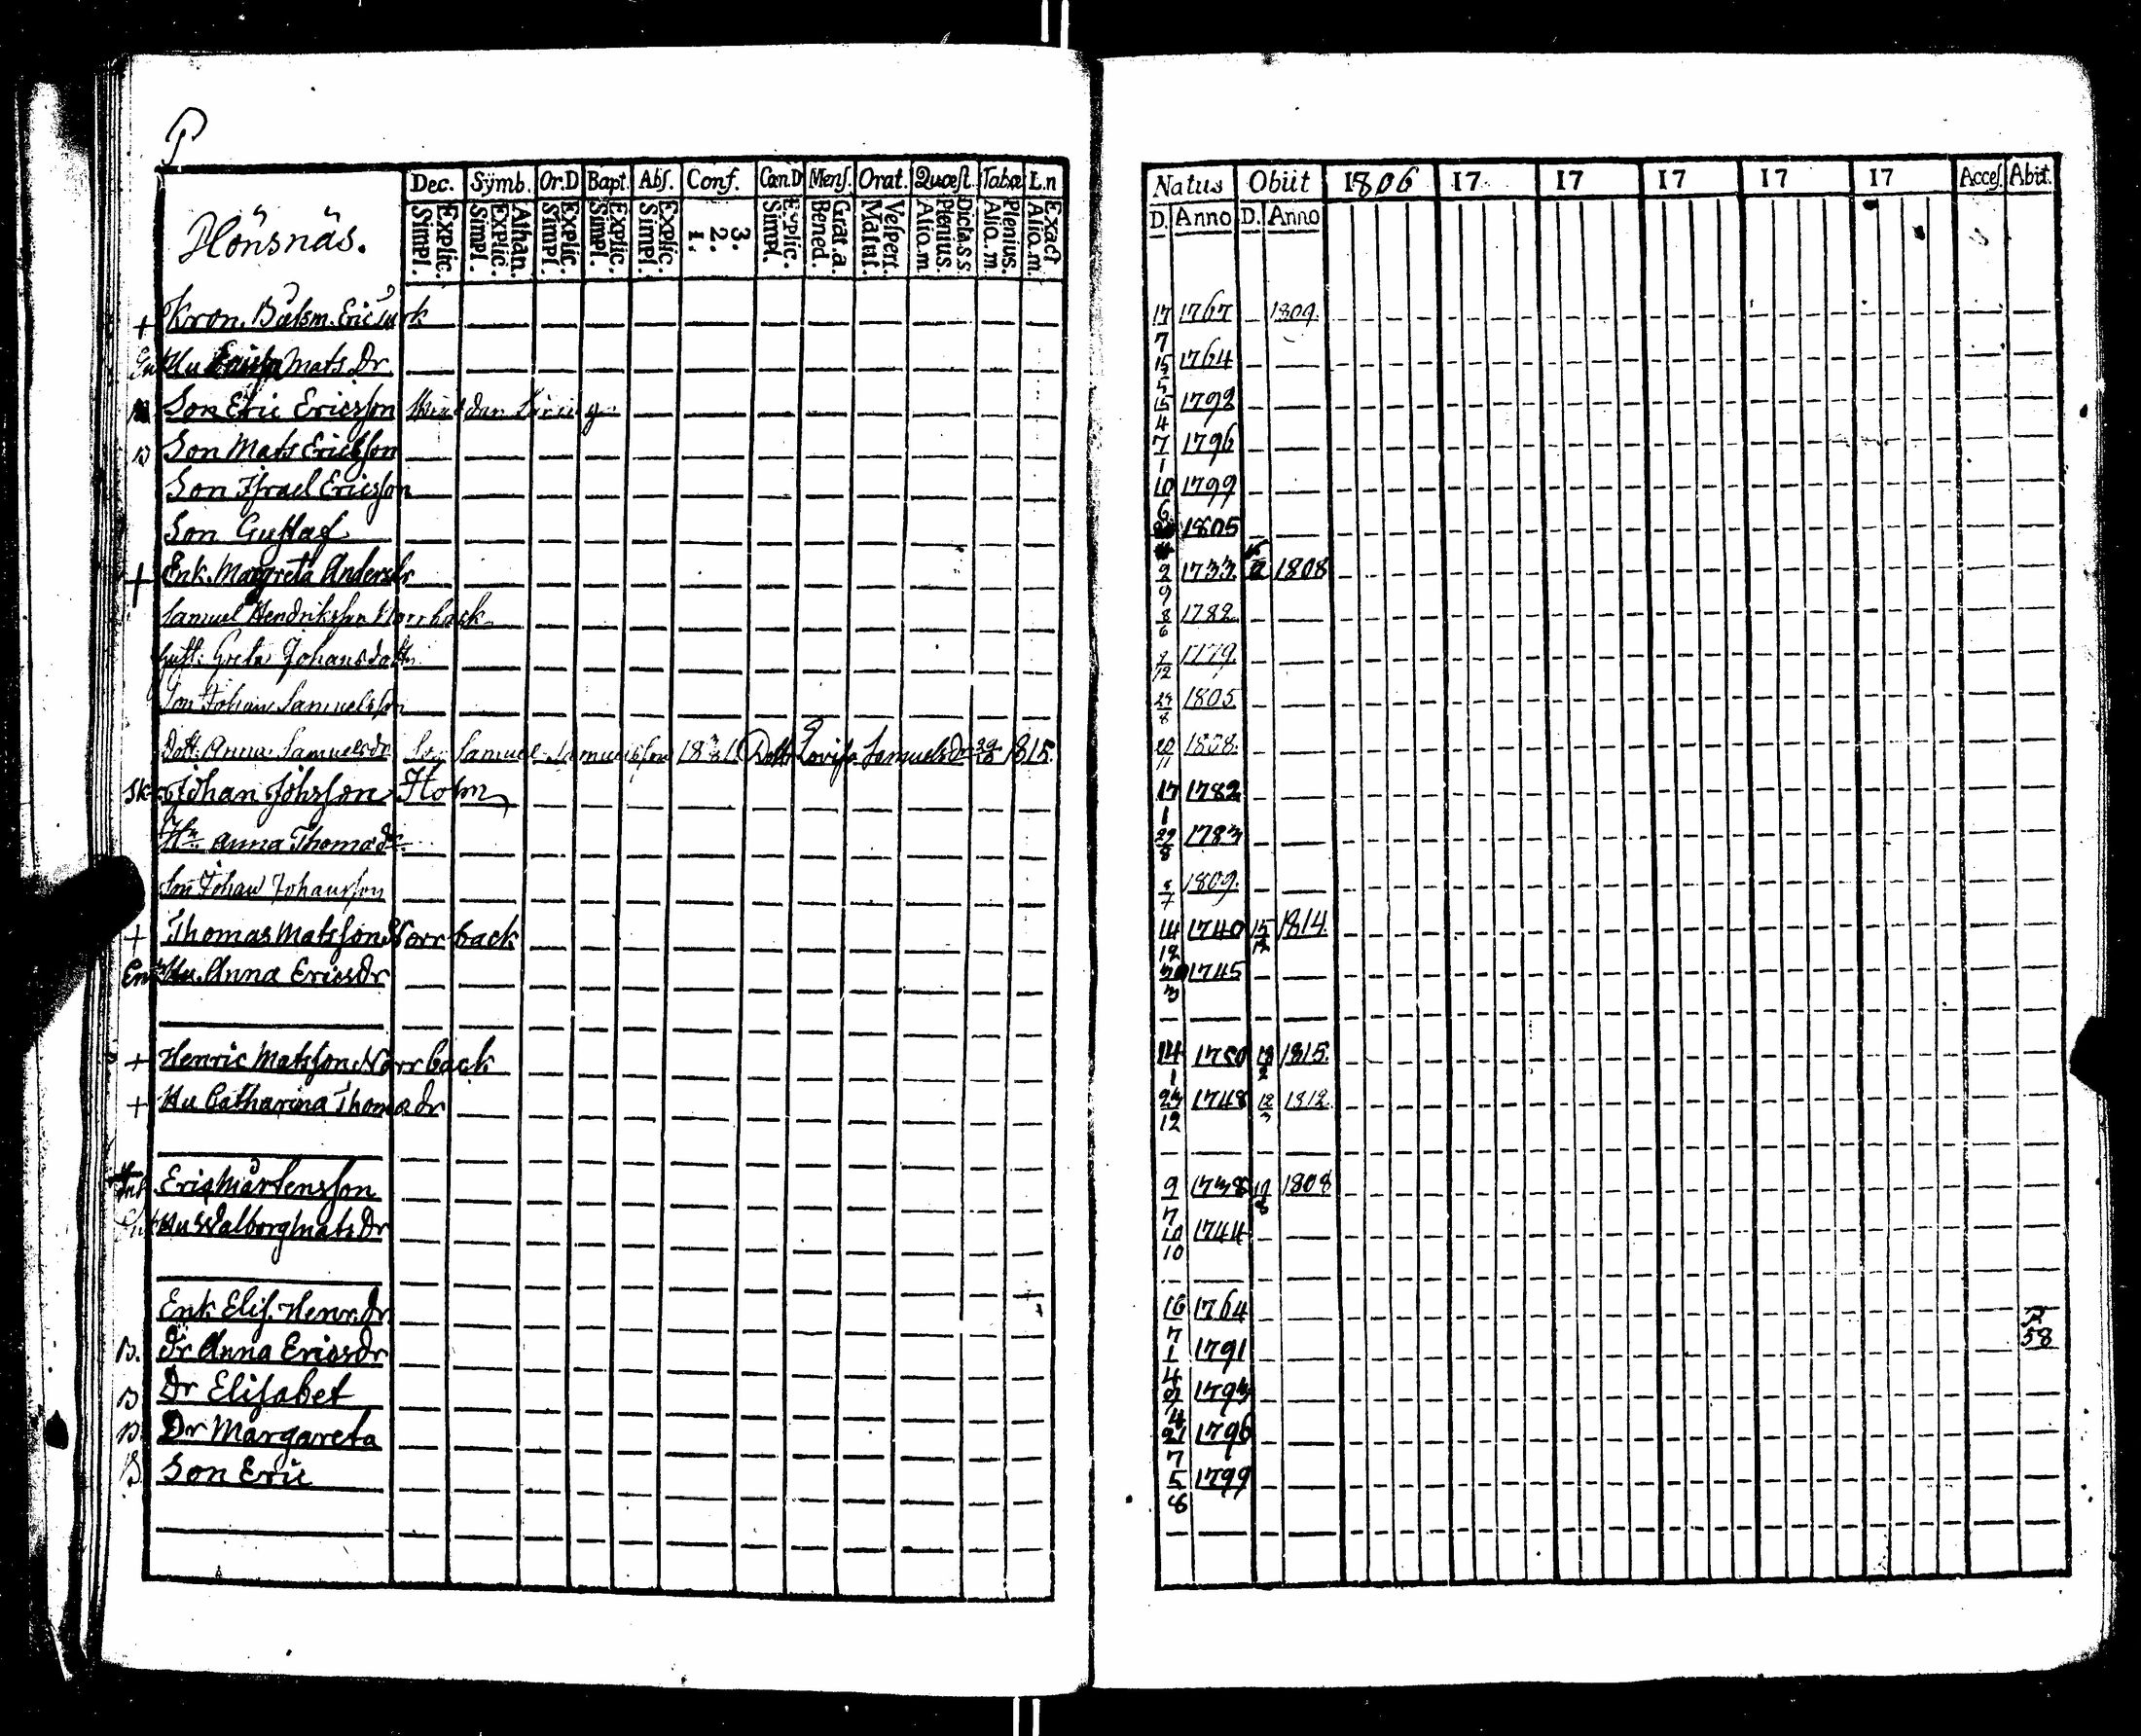 P
Hönsnäs.
Dec. Symb. Or.D Bapt. Abs. Conf. Can.D Mens. Orat. Quæst. Tabæ L.n
Simpl. Explic. Simpl. Explic. Athan. Simpl. Explic. Simpl. Explic. Simpl. Explic. 1. 2. 3. Simpl. Explic. Bened. Grat.a. Matut. Vespert. Alio.m Plenius. Dictass. Alio.m. Plenius. Alio.m. Exact
Natus Obiit 1806 17 17 17 17 17 Acces. Abiit.
D. Anno D. Anno
+ Kron. Båtsm. Eric 17/7 1767 1809.
Hu Mats Dr 15/5 1764
Son Eric Ericsson 15/4 1792
Son Mats Ericsson 7/1 1796
Son Israel Ericsson 10/6 1799
Son Gustaf 1805
+ Enk. Margreta Andersdr 2/9 1733 1808
Samuel Hendriksson Norrback 8/6 1782
Hust: Greta Johansdottr 1779
Son Johan Samuelsson 24/8 1805
Dott: Anna Samuelsdr Son Samuel Samuelsson Dott Lovisa Samuelsdr 1815. 20/11 1808.
Johan Johsson Holm 17/1 1782
Hu Anna Thomadr 29/8 1783
Son Johan Johansson 1809.
+ Thomas Matsson Norrback 14/12 1740 15/12 1814
Enk Hu. Anna Ericsdr 1745
+ Henric Matsson Norrback 14/1 1750 1815.
+ Hu Catharina Thomadr 24/12 1748 12/3 1812.
Eric Mårtensson 9/7 1738 19/8 1808
Enk Hu Walborg Mats Dr 10/10 1744
Enk Elis. Henr. dr 16/7 1764
Dr Anna Ericsdr 1/4 1791 58
Dr Elisabet 1793
Dr Margareta 21/7 1796
Son Eric 5/6 1799